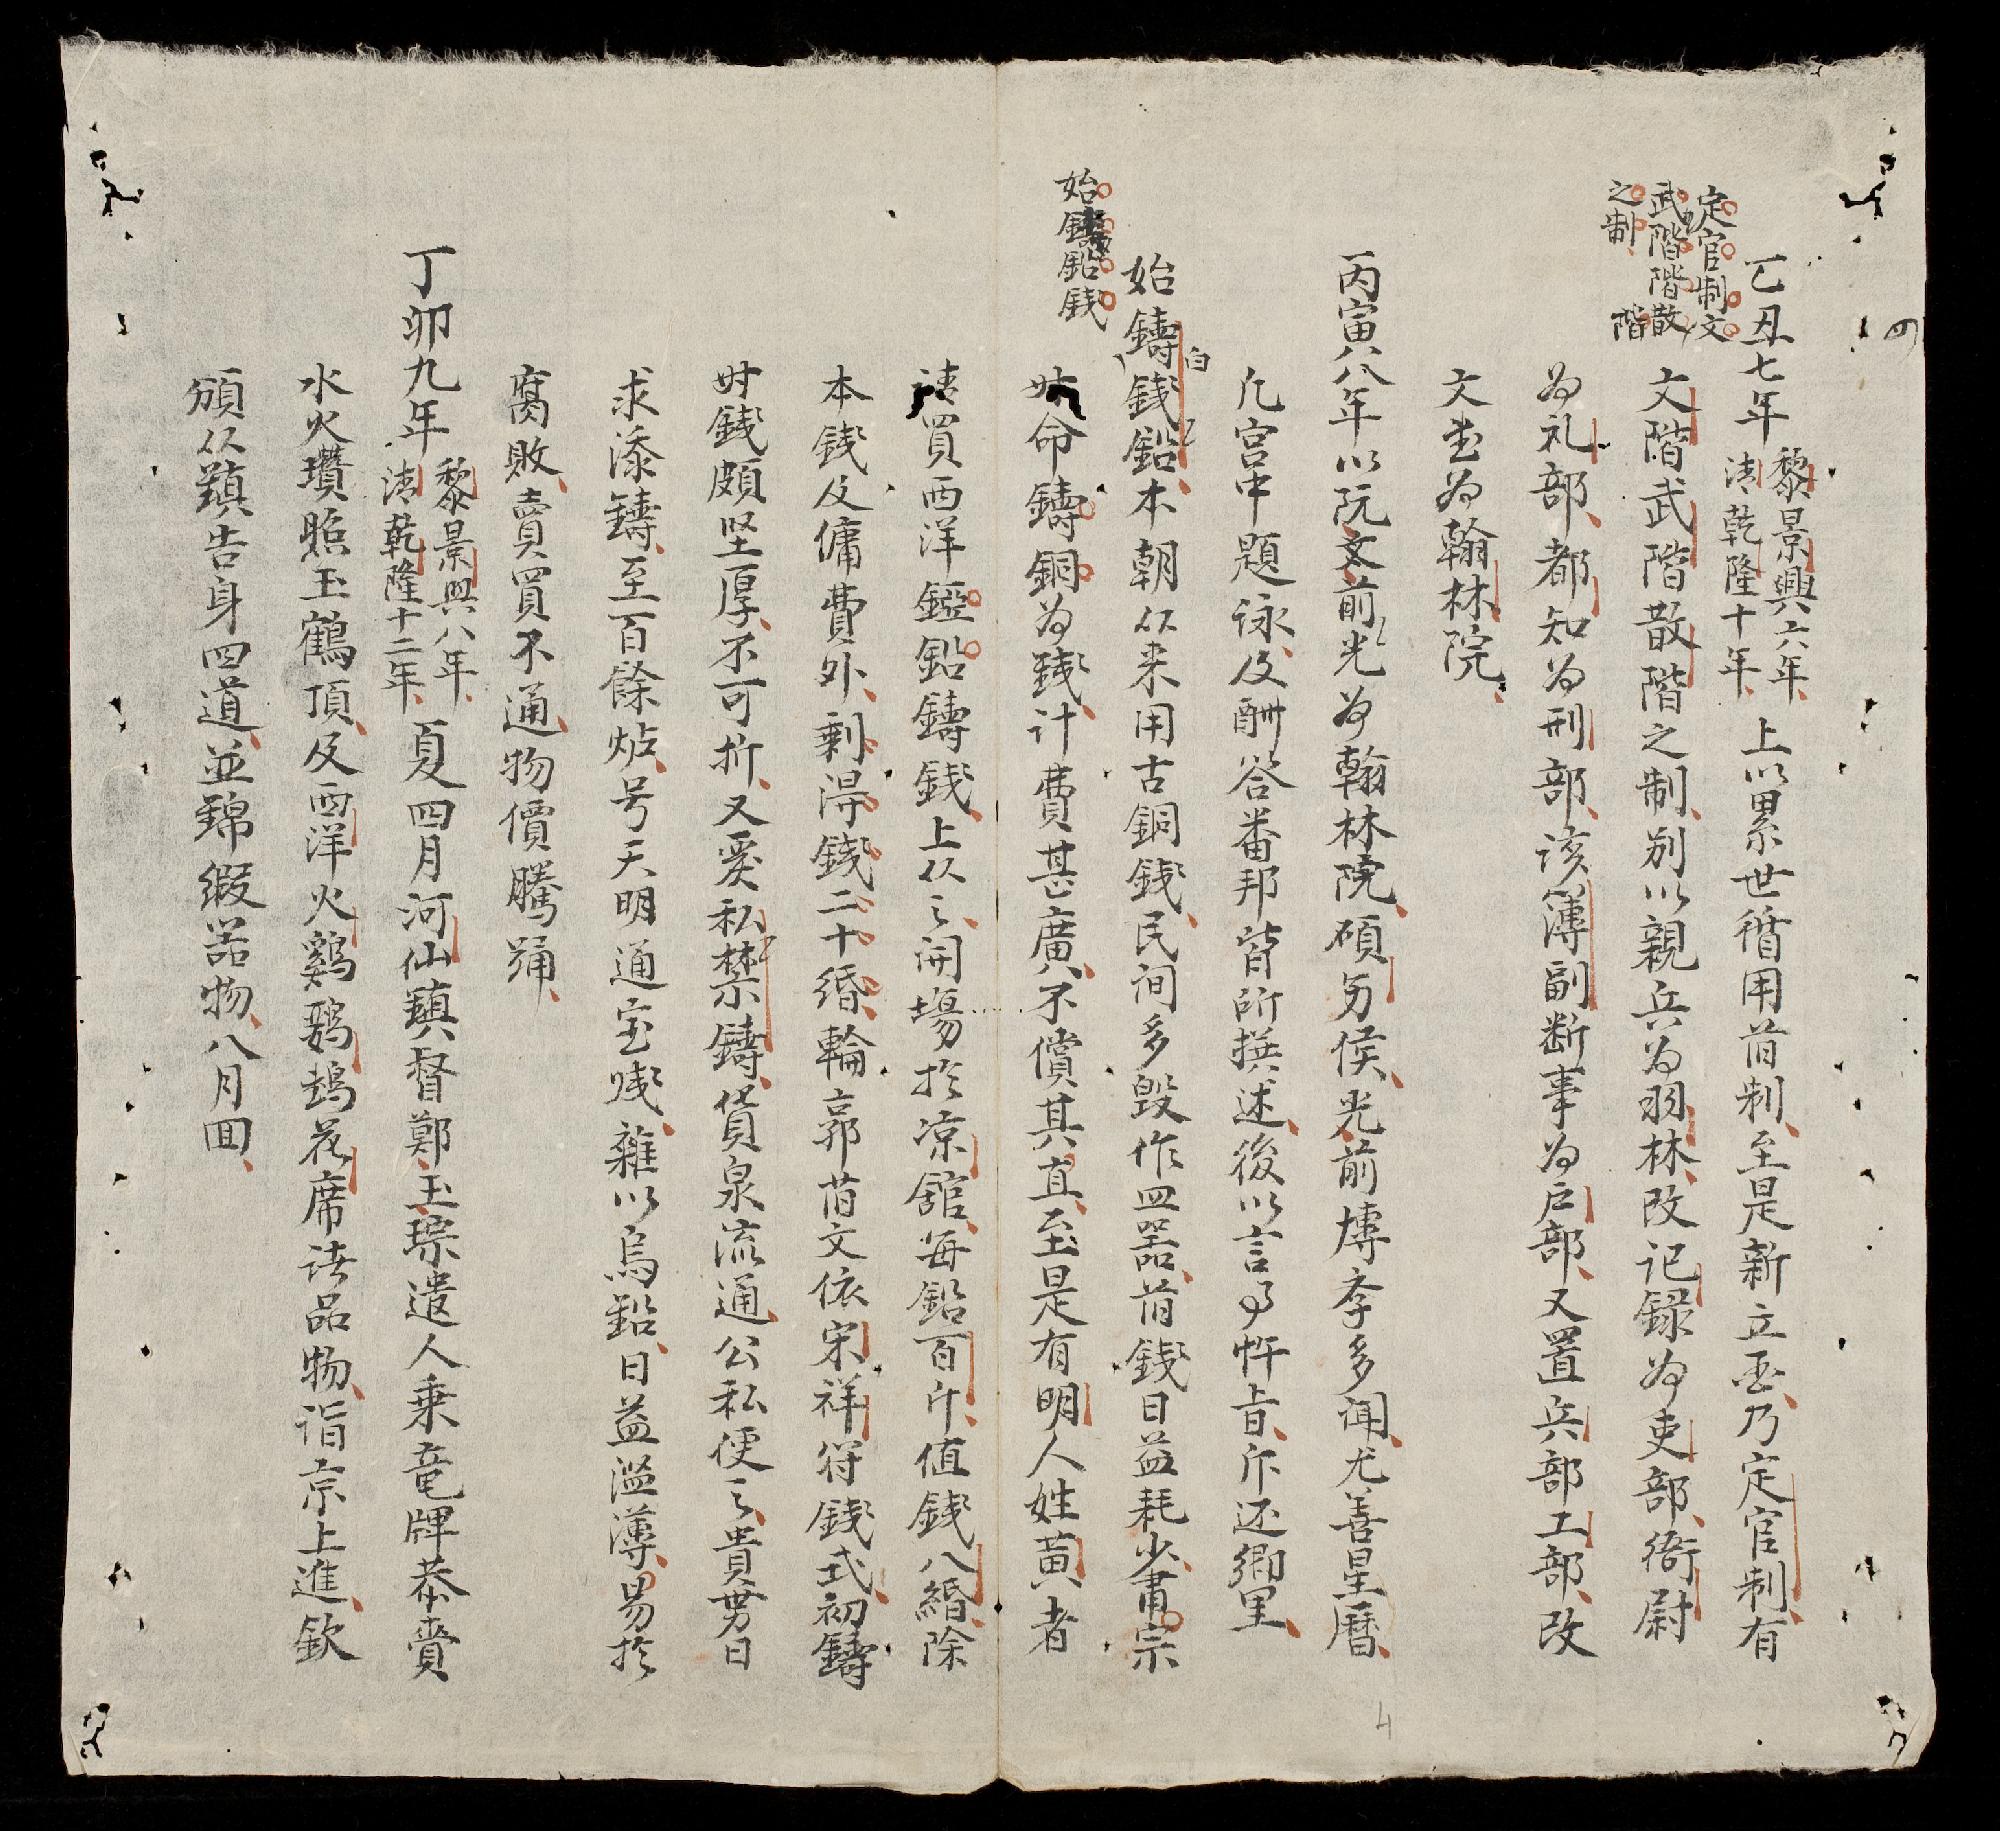 乙丑七年 黎景興六年 清乾隆十年 上以累世循用前制至是新立国乃定官制有
定官制文
武階階散
階之制
文階武階散階之制别以親兵为羽林改记録为吏部衙尉
为礼部都知为刑部该簿副断事为户部又置兵部工部改
文书为翰林院
丙寅八年以阮文前光为翰林院碩多侯光前博李多闻尤善星曆
凡宫中題詠及酬答番邦皆所撰述後以言事忤旨斥还鄉里
始鑄白鉛銭
始鑄銭鉛本朝以来用古銅銭民间多毀作皿器前銭日益耗少肃宗
始鑄鉛銭
甞命鑄銅为銭计費甚廣不償其直至是有明人姓黄者
請買西洋鋞鉛鑄銭上从之開場於凉舘每鉛百斤值銭八緡除
本銭及傭費外剩得銭二十緡輪郭前文依宋祥符銭式初鑄
时銭頗坚厚不可折又爰私禁鑄貨泉流通公私便之貴贯日
求添鑄至百餘炉号天明通宝銭雜以烏鉛日益滥薄易於
腐敗賣買不通物價騰踴
丁卯九年 黎景興八年 清乾隆十二年 夏四月河仙鎮督鄭玉琮遣人乗竜牌恭賚
水火瓚照玉鶴頂及西洋火鷄鸚鵡花席诸品物诣京上進欽
頒从鎮告身四道並錦緞器物八月囬